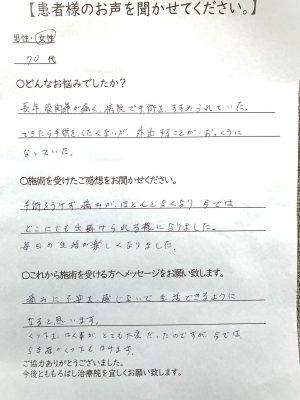 【患者様のお声を聞かせてください。】
男性・女性
70 代
○どんなお悩みでしたか？
長年股関節が痛く、病院で手術をすすめられていた。
できたら手術をしたくないが、外出することが、おっくうに
なっていた。
○施術を受けたご感想をお聞かせください。
手術をうけず痛みが、ほとんどなくなり 今では
どこにでも出掛けられる様になりました。
毎日の生活が楽しくなりました。
○これから施術を受ける方へメッセージをお願い致します。
痛みに不安を感じないで生活できるように
なると思います。
くつ下を、はく事が、とても大変だったのですが、今では
くつ下もはけます。
ご協力ありがとうございました。
今後とももろはし治療院を宜しくお願い致します。